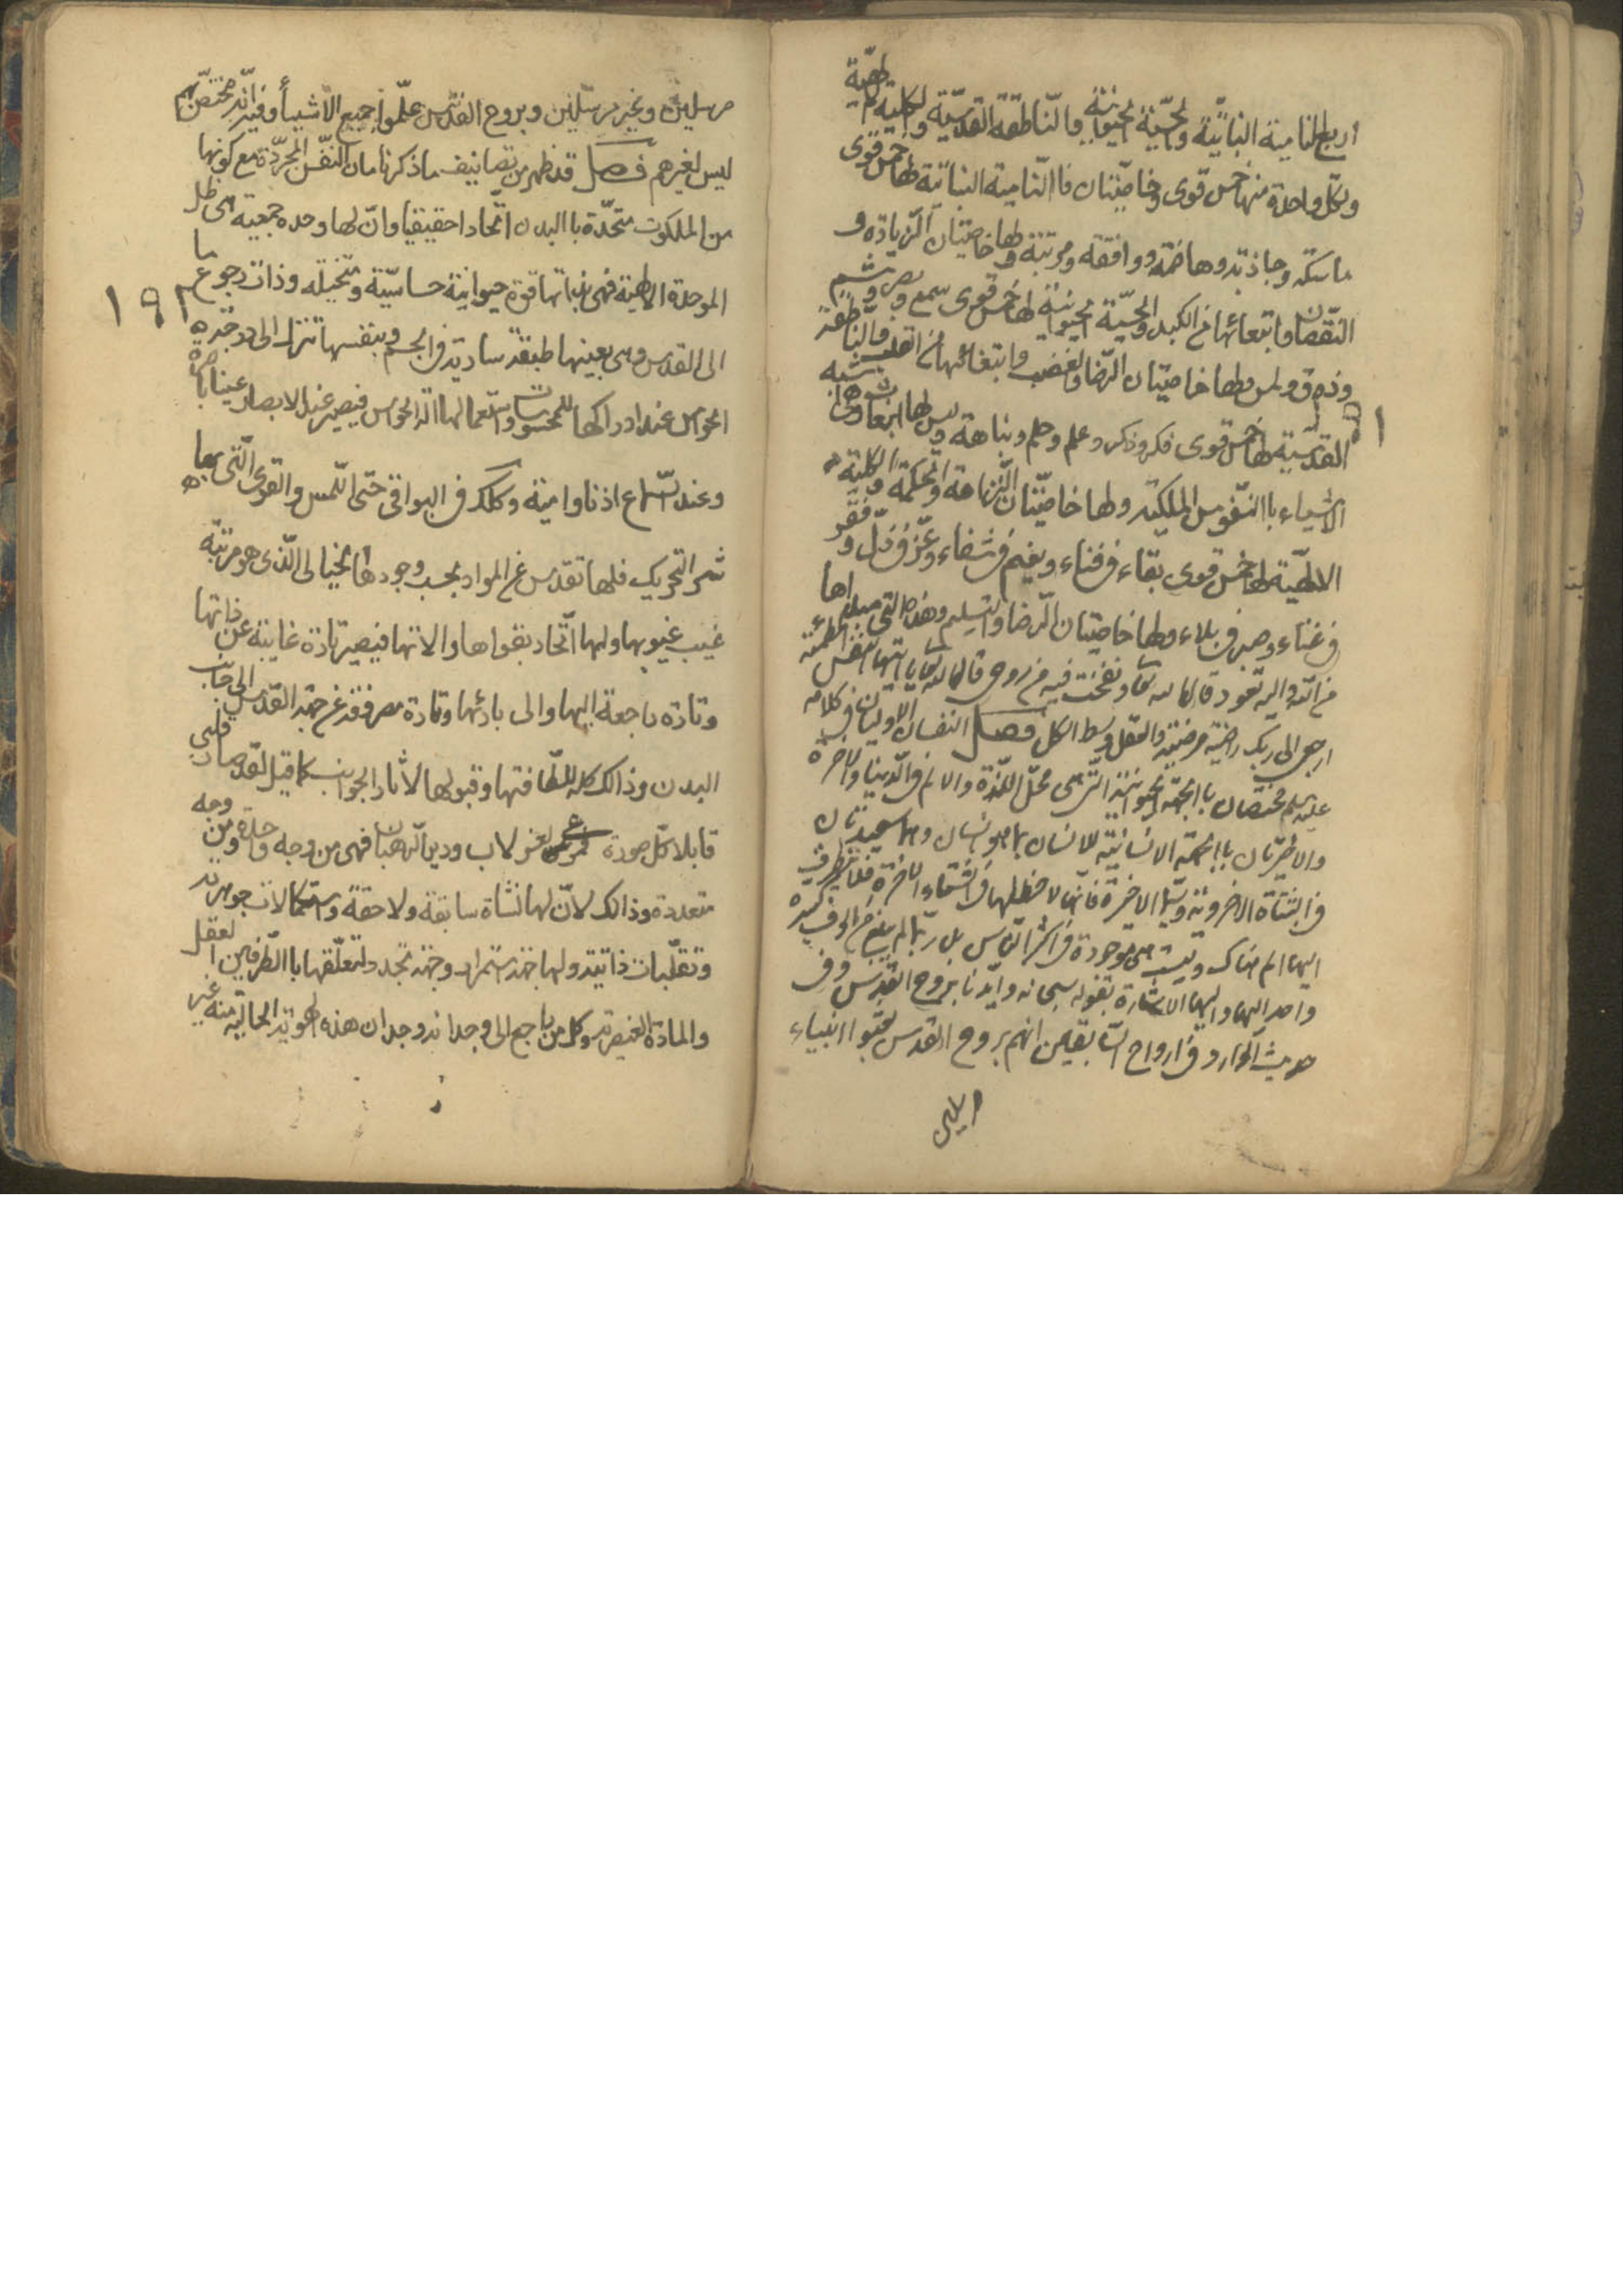 اربع النامية النباتيّة والحسّيّة الحيوانيّة والنّاطقة القدسيّة والكليّة الالهيّة
ولكلّ واحدة منها خمس قوى وخاصّيّتان فاالنّامية النباتيّة لها خمس قوى
ماسكه وجاذبه وهاضمة ودافعة ومربّية ولها خاصّيّتان الزّيادة و
النّقصان وانبعاثها من الكبد والحسّيّة الحيوانيّة لها خمس قوى سمع وبصر وشم
وذوق ولمس ولها خاصيّتان الرّضا والغضب وانبعاثها من القلب والنّاطقة
القدسيّة لها خمس قوى فكر وذكر وعلم وحلم ونباهة وليس لها انبعاث وهي اشبه
الاشياء باالنّفوس الملكيّه ولها خاصيّتان النّزاهة والحكمة والكليّة
الالهيّة لها خمس قوى بقاء في فناء ونعيم في شقاء وعزّ في ذلّ وفقر
في غناء وصبر في بلاء ولها خاصيّتان الرّضا والتسليم وهذه التى مبداها
من اللّه واليه تعود قال الله تعا ونفخت فيه من روحى قال الله تعا يا ايّتها النفس المطمئنّة
ارجعى الى ربك راضية مرضيّة والعقل وسط الكل فصل النفسان الاوليان في كلامه
عليه السلم مختصّان باالجهة الحيوانيّة الّتى هى محلّ اللّذّة والالم في الدّنيا والاخرة
والاخيرتان باالجهة الانسانيّة للانسان بما هو انسان وهما سعيدتان
في النشأة الاخرويّة وسيّما الاخيرة فانّها لا حظّ لهما في الشقاء الاخرة فلا يتطرق
اليهما الم هناك وليست هى موجودة في اكثر النّاس بل ربّما لم يبلغ من الوف كثيرة
واحد اليهما واليهما الاشارة بقوله سبحانه وايّدنا بروح القدس وفي
حديث الوارد في ارواح السّابقين انهم بروح القدس بعثوا انبياء
مرسلين
مرسلين وغير مرسلين وبروح القدس علّموا جميع الاشياء وفيه انّه مختصّ بهم
ليس لغيرهم فصل قد ظهر من تضاعيف ما ذكرنا ان النّفس المجرّدة مع كونها
من الملكوت متّحدة باالبدن اتّحادا حقيقيا وانّ لها وحده جمعية هى ظل
الموحدة الالهية فهى بذاتها قوة حيوانية حساسّية ومتخيله وذات رجوع ما
١٩٢
الى القدس وهى بعينها طبيعة سارية في الجسم وبنفسها تنزل الى درجة
الحواس عند ادراكها للمحسوسات واستعمالها الة الحواس فيصير عند الابصار عينا باصرة
وعند السّماع اذنا واعية وكذلك في البواقى حتى اللّمس والقوى الّتى بها
ثمر التحريك فلها تقدس عن المواد بحسب وجودها الخيالى الّذى هو مرتبة
غيب غيوبها ولها اتّحاد بقواها والاتها فيصير تارة غايبة عن ذاتها
وتارة راجعة اليها والى بارئها وتارة مصروفة عن جهة القدس الى جانب
البدن وذالك كله للطافتها وقبولها لاثار الجوانب كما قيل لقد صار قلبى
قابلا كلّ صورة فمرعى لغزلان ودير الرهبان فهى من وجه واحدة ومن وجه
متعددة وذالك لانّ لها نشاة سابقة ولاحقة واستكمالات جوهرية
وتقلّبات ذاتية ولها جهة استمرار وجهة تجدد لتعلّقها باالطّرفين العقل
والمادة العنصرية وكل من راجع الى وجدانه وجد ان هذه الهوية الحالّية منه غير